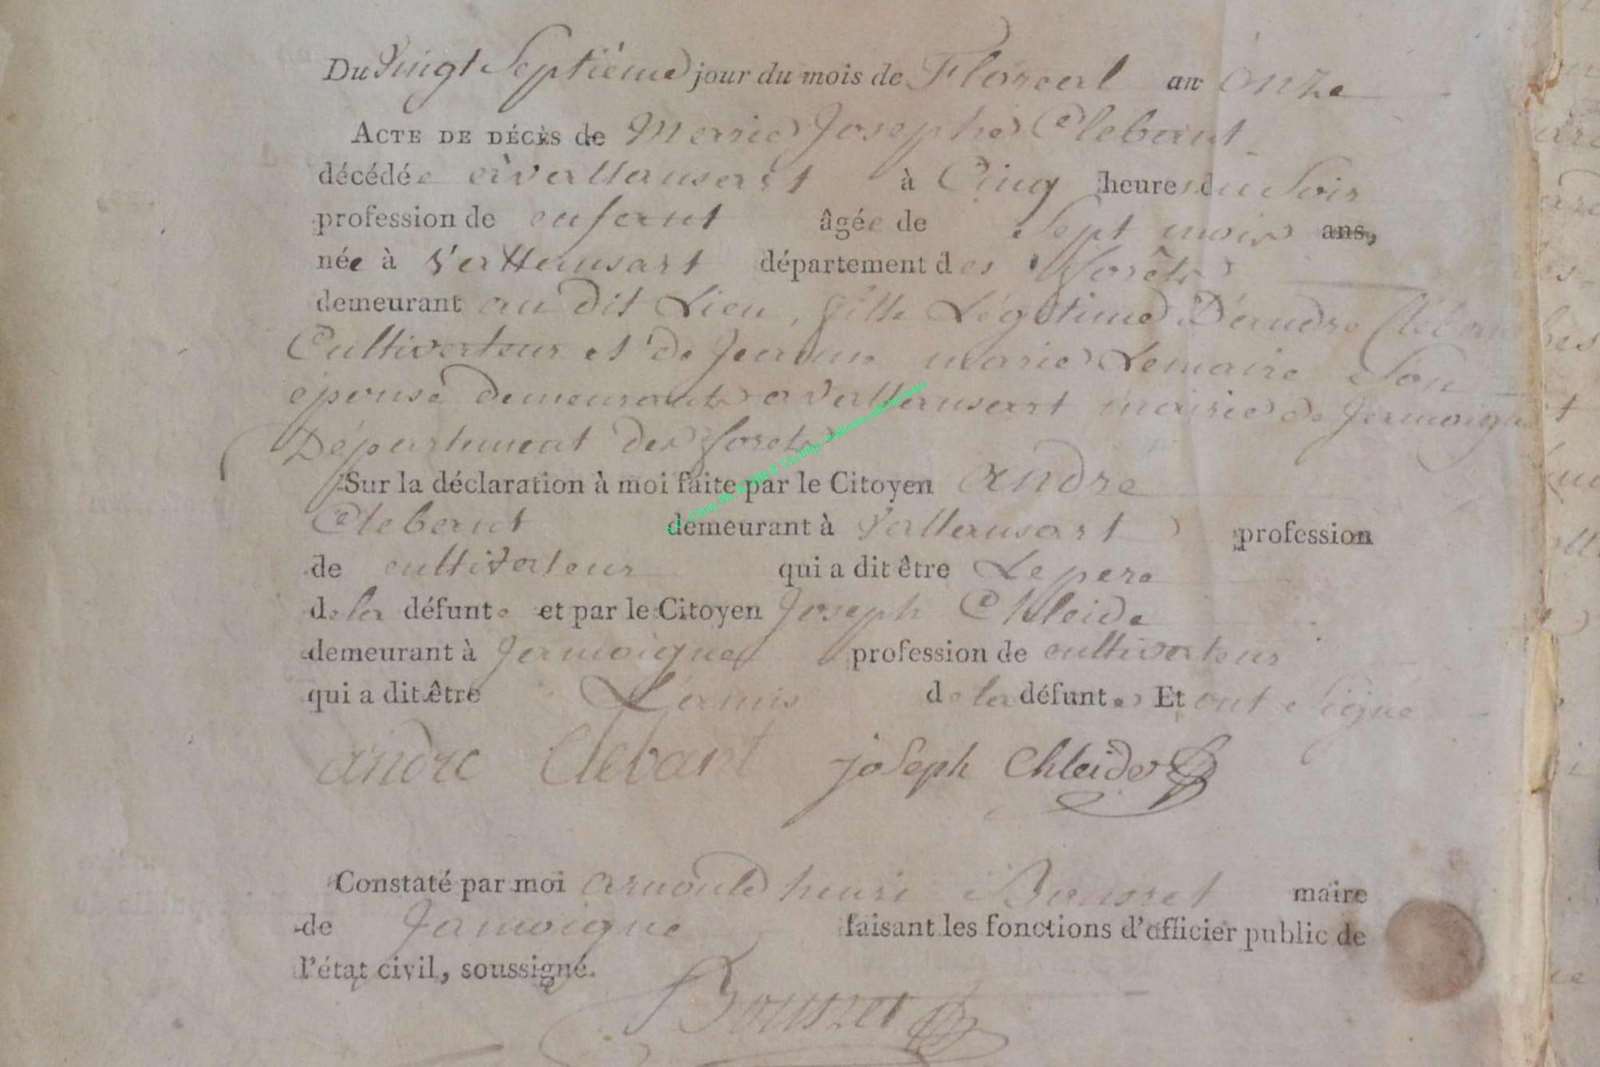 Du Vingt Septième jour du mois de Floreal an onze
ACTE DE DÉCÈS de Marie Josephe Clebant
décédée à vallansart à Cinq heures du Soir
profession de enfant âgée de Sept mois ans,
née à Vallansart département des forêts
demeurant au dit Lieu, fille Légitime D'andre
Cultivateur et de Jeanne marie Lemaire Son
épouse demeurant a vallansart mairie de Jamoigne
Département des forets
Sur la déclaration à moi faite par le Citoyen andre
Clebant demeurant à Vallansart profession
de cultivateur qui a dit être Le pere
de la défunte et par le Citoyen Joseph Chleide
demeurant à Jamoigne profession de cultivateur
qui a dit être L'amis de la défunte Et ont Signe
andre Clebant joseph Chleide
Constaté par moi arnould henri maire
de Jamoigne faisant les fonctions d'officier public de
l'état civil, soussigné.